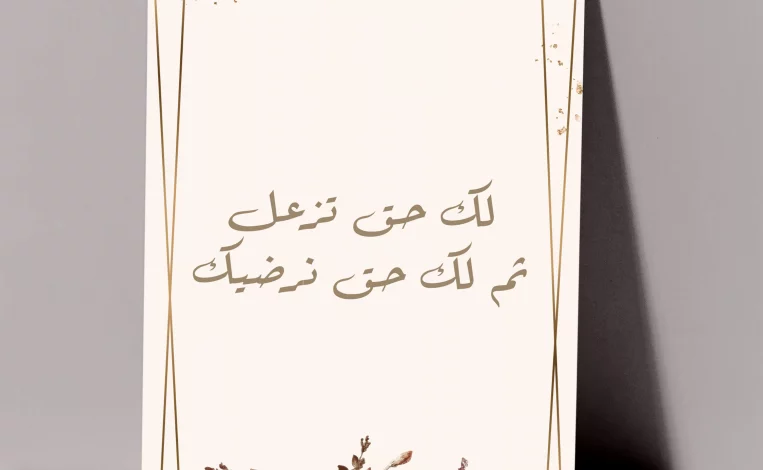 لك حق تزعل
ثم لك حق نرضيك